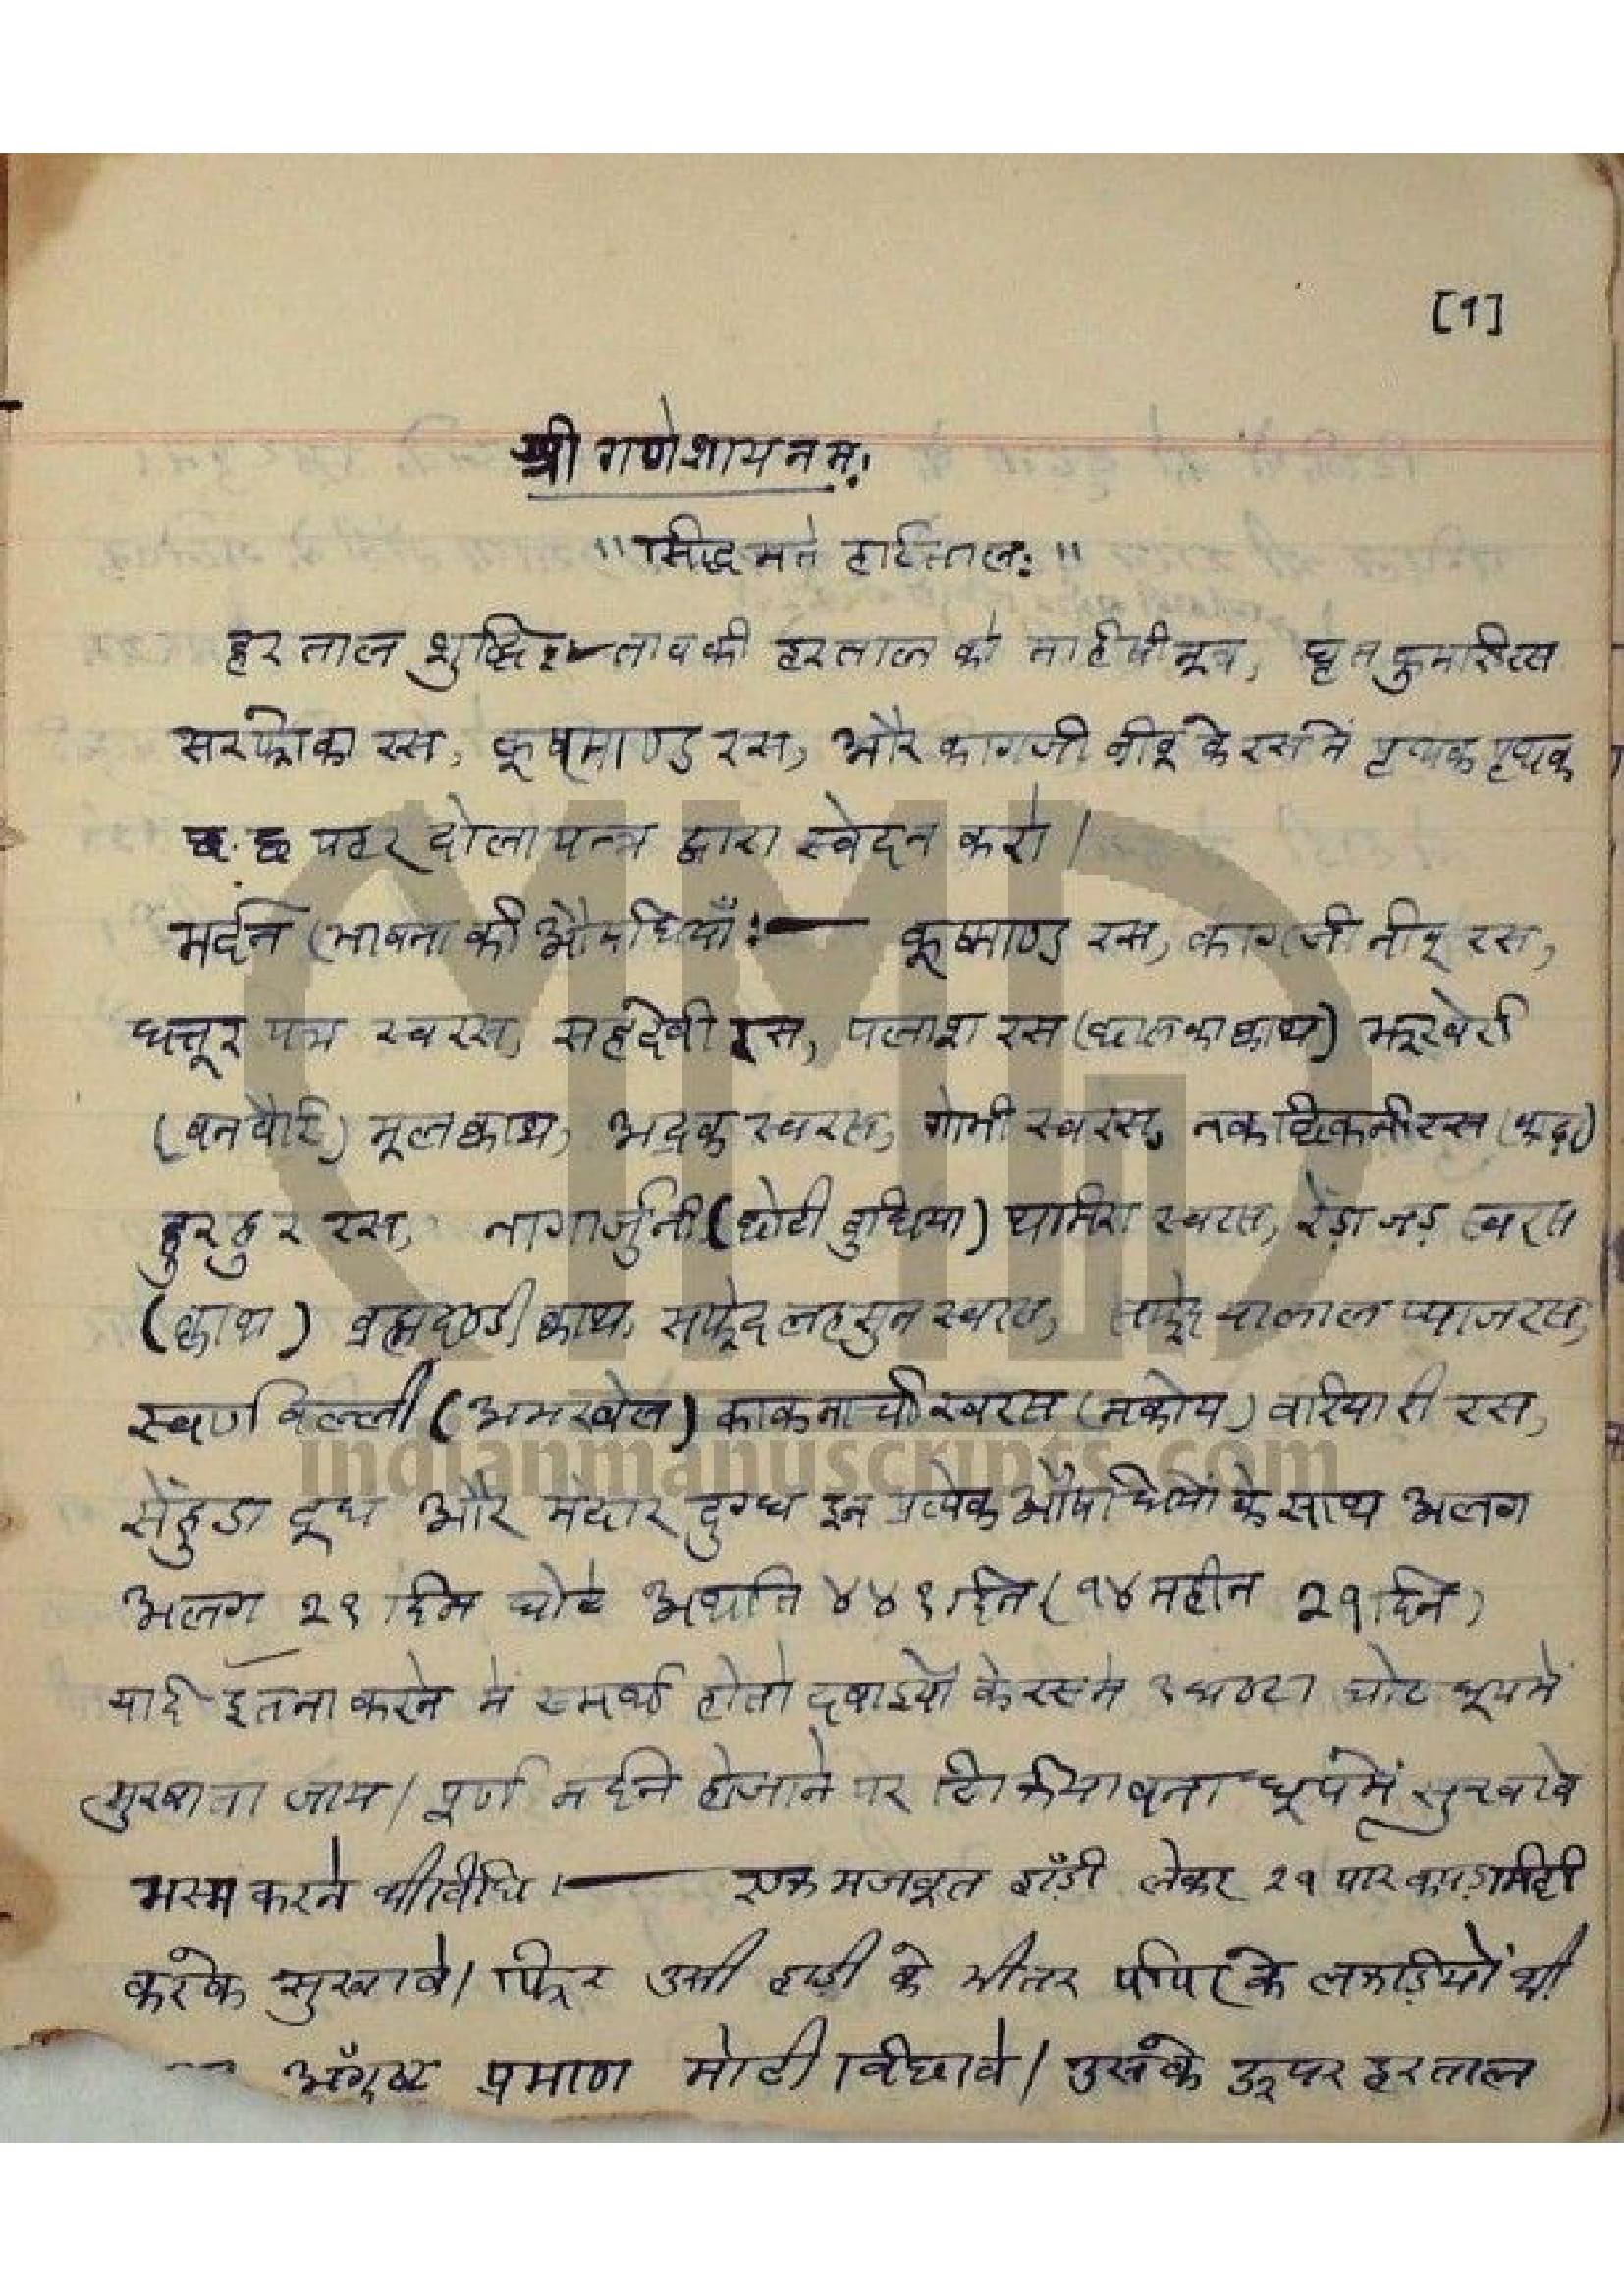 [१]
श्री गणेशाय नमः
"सिद्ध मते हरिताल:"
हरताल शुद्धि:— तावकी हरताल को माहिषी मूत्र, घृत कुमारी रस
सरफोका रस, कूष्माण्ड रस, और कागजी नीबू के रस में पृथक पृथक
छ. छ पहर दोला यन्त्र द्वारा स्वेदन करो।
मर्दन (भावना की औषधियाँ :— कूष्माण्ड रस, कागजी नीबू रस,
धत्तूर पत्र स्वरस, सहदेवी रस, पलाश रस (छाल का क्वाथ) झरबेरी
(वन बैरि) मूल क्वाथ, अद्रक स्वरस, गोभी स्वरस, नकछिकनी रस (काढ़ा)
हुरहुर रस, नागार्जुनी (छोटी दुधिया) घमिरा स्वरस, रेंड़ा जड़ स्वरस
(क्वाथ) ब्रह्मदण्डी क्वाथ, सफेद लहसुन स्वरस, सफेद या लाल प्याज रस,
स्वर्ण वल्ली (अमरबेल) काकमाची स्वरस (मकोय) वरियारी रस,
सेंहुडा दूध और मदार दुग्ध इन प्रत्येक औषधियों के साथ अलग
अलग २१ दिन घोटे अर्थात ४४१ दिन (१४ महीन २१ दिन)
यदि इतना करने में समर्थ हो तो दवाइयों के रस में १ घण्टा घोट धूप में
सुखाता जाय। पूर्ण मर्दन होजाने पर टिकिया बना धूप में सुखावे
भस्म करने की विधि :— एक मजबूत हाँड़ी लेकर २१ बार कपड़ मिट्टी
करके सुखावे। फिर उसी हाड़ी के भीतर पीपर के लकड़ियों की
अँगुष्ठ प्रमाण मोटी बिछावे। उसके ऊपर हरताल
MMG
indianmanuscripts.com